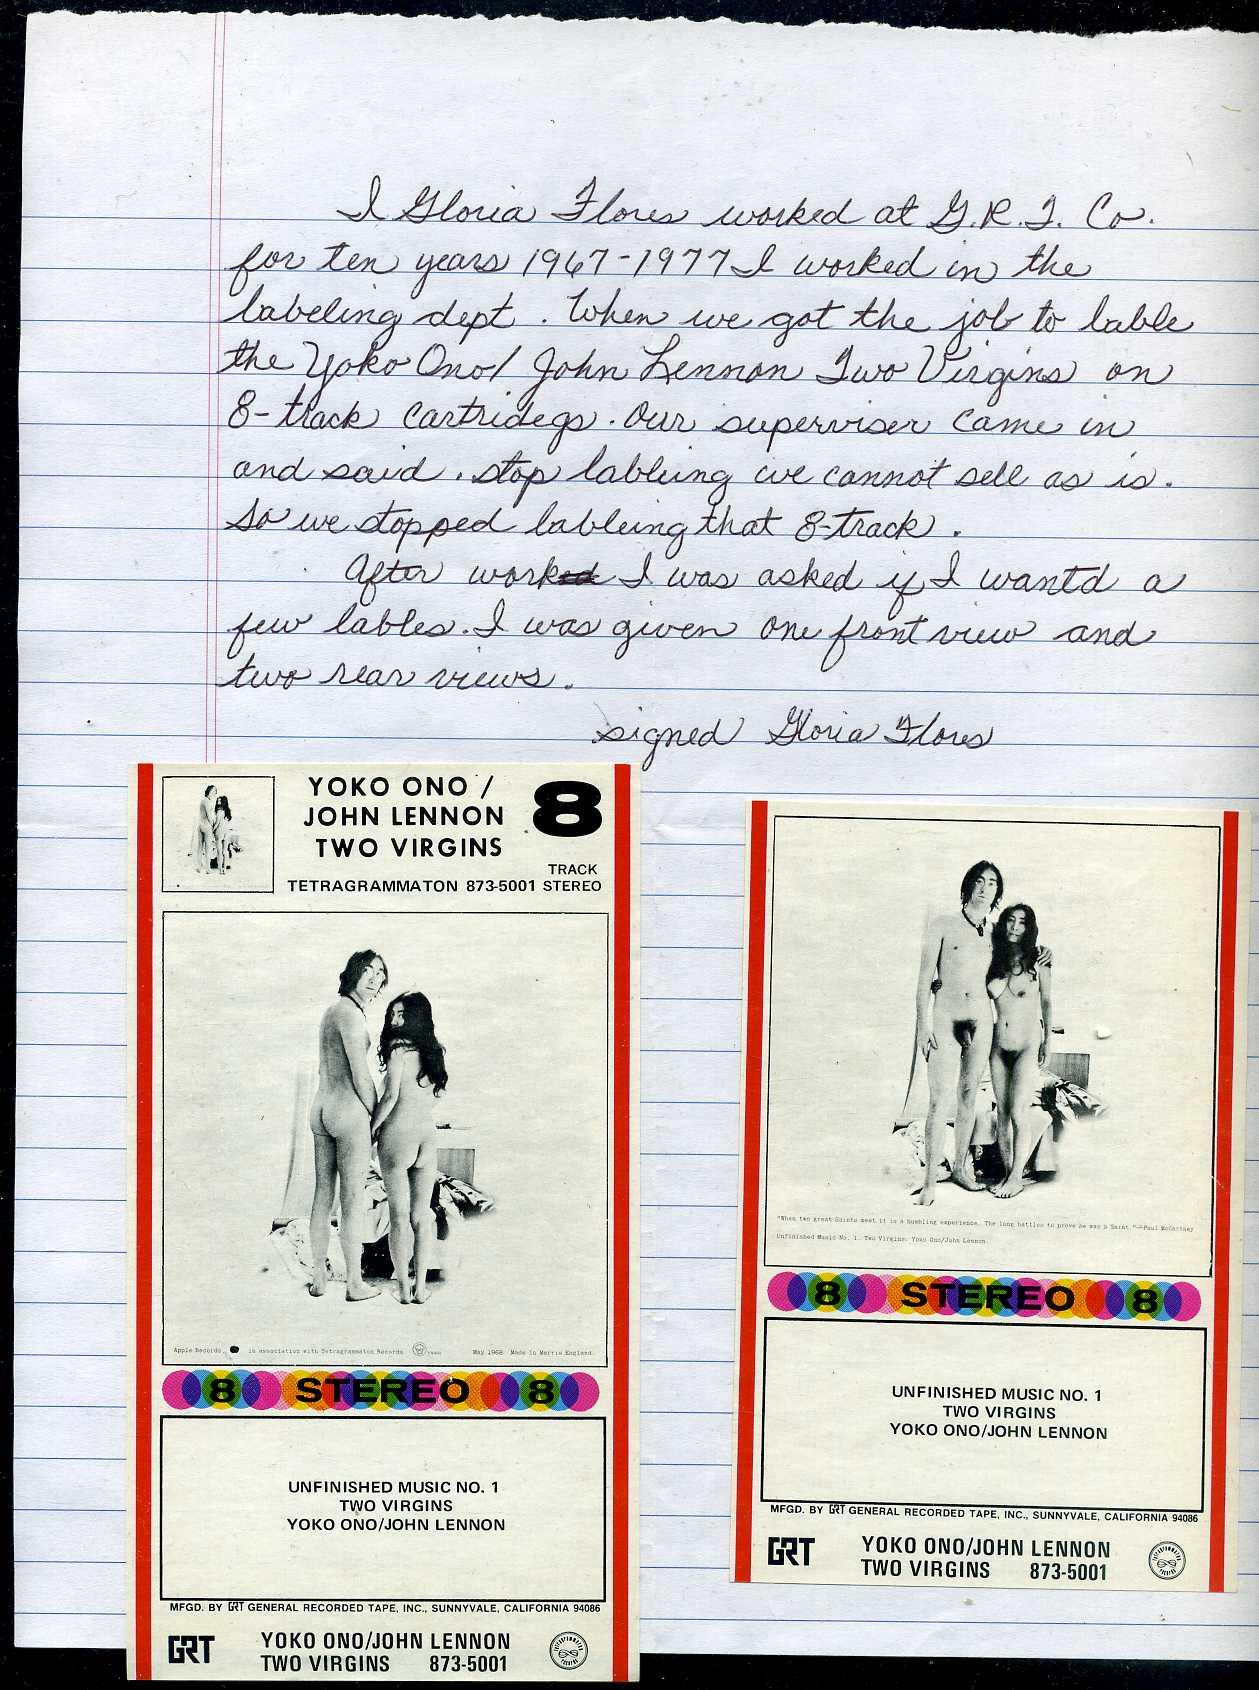 I Gloria Flores worked at G.R.T. Co.
for ten years 1967-1977 I worked in the
labeling dept. When we got the job to lable
the Yoko Ono/ John Lennon Two Virgins on
8-track cartridegs. Our superviser came in
and said. stop lableing we cannot sell as is.
So we stopped lableing that 8-track.
After work I was asked if I wantd a
few lables. I was given one front view and
two rear views.
signed Gloria Flores
YOKO ONO /
JOHN LENNON
TWO VIRGINS
8
TRACK
TETRAGRAMMATON 873-5001 STEREO
Apple Records in association with Tetragrammaton Records May 1968 Made in Merrie England.
8 STEREO 8
UNFINISHED MUSIC NO. 1
TWO VIRGINS
YOKO ONO/JOHN LENNON
MFGD. BY GRT GENERAL RECORDED TAPE, INC., SUNNYVALE, CALIFORNIA 94086
GRT
YOKO ONO/JOHN LENNON
TWO VIRGINS 873-5001
"When two great Saints meet it is a humbling experience. The long battles to prove he was a Saint."—Paul McCartney
Unfinished Music No. 1. Two Virgins. Yoko Ono/John Lennon.
8 STEREO 8
UNFINISHED MUSIC NO. 1
TWO VIRGINS
YOKO ONO/JOHN LENNON
MFGD. BY GRT GENERAL RECORDED TAPE, INC., SUNNYVALE, CALIFORNIA 94086
GRT
YOKO ONO/JOHN LENNON
TWO VIRGINS 873-5001